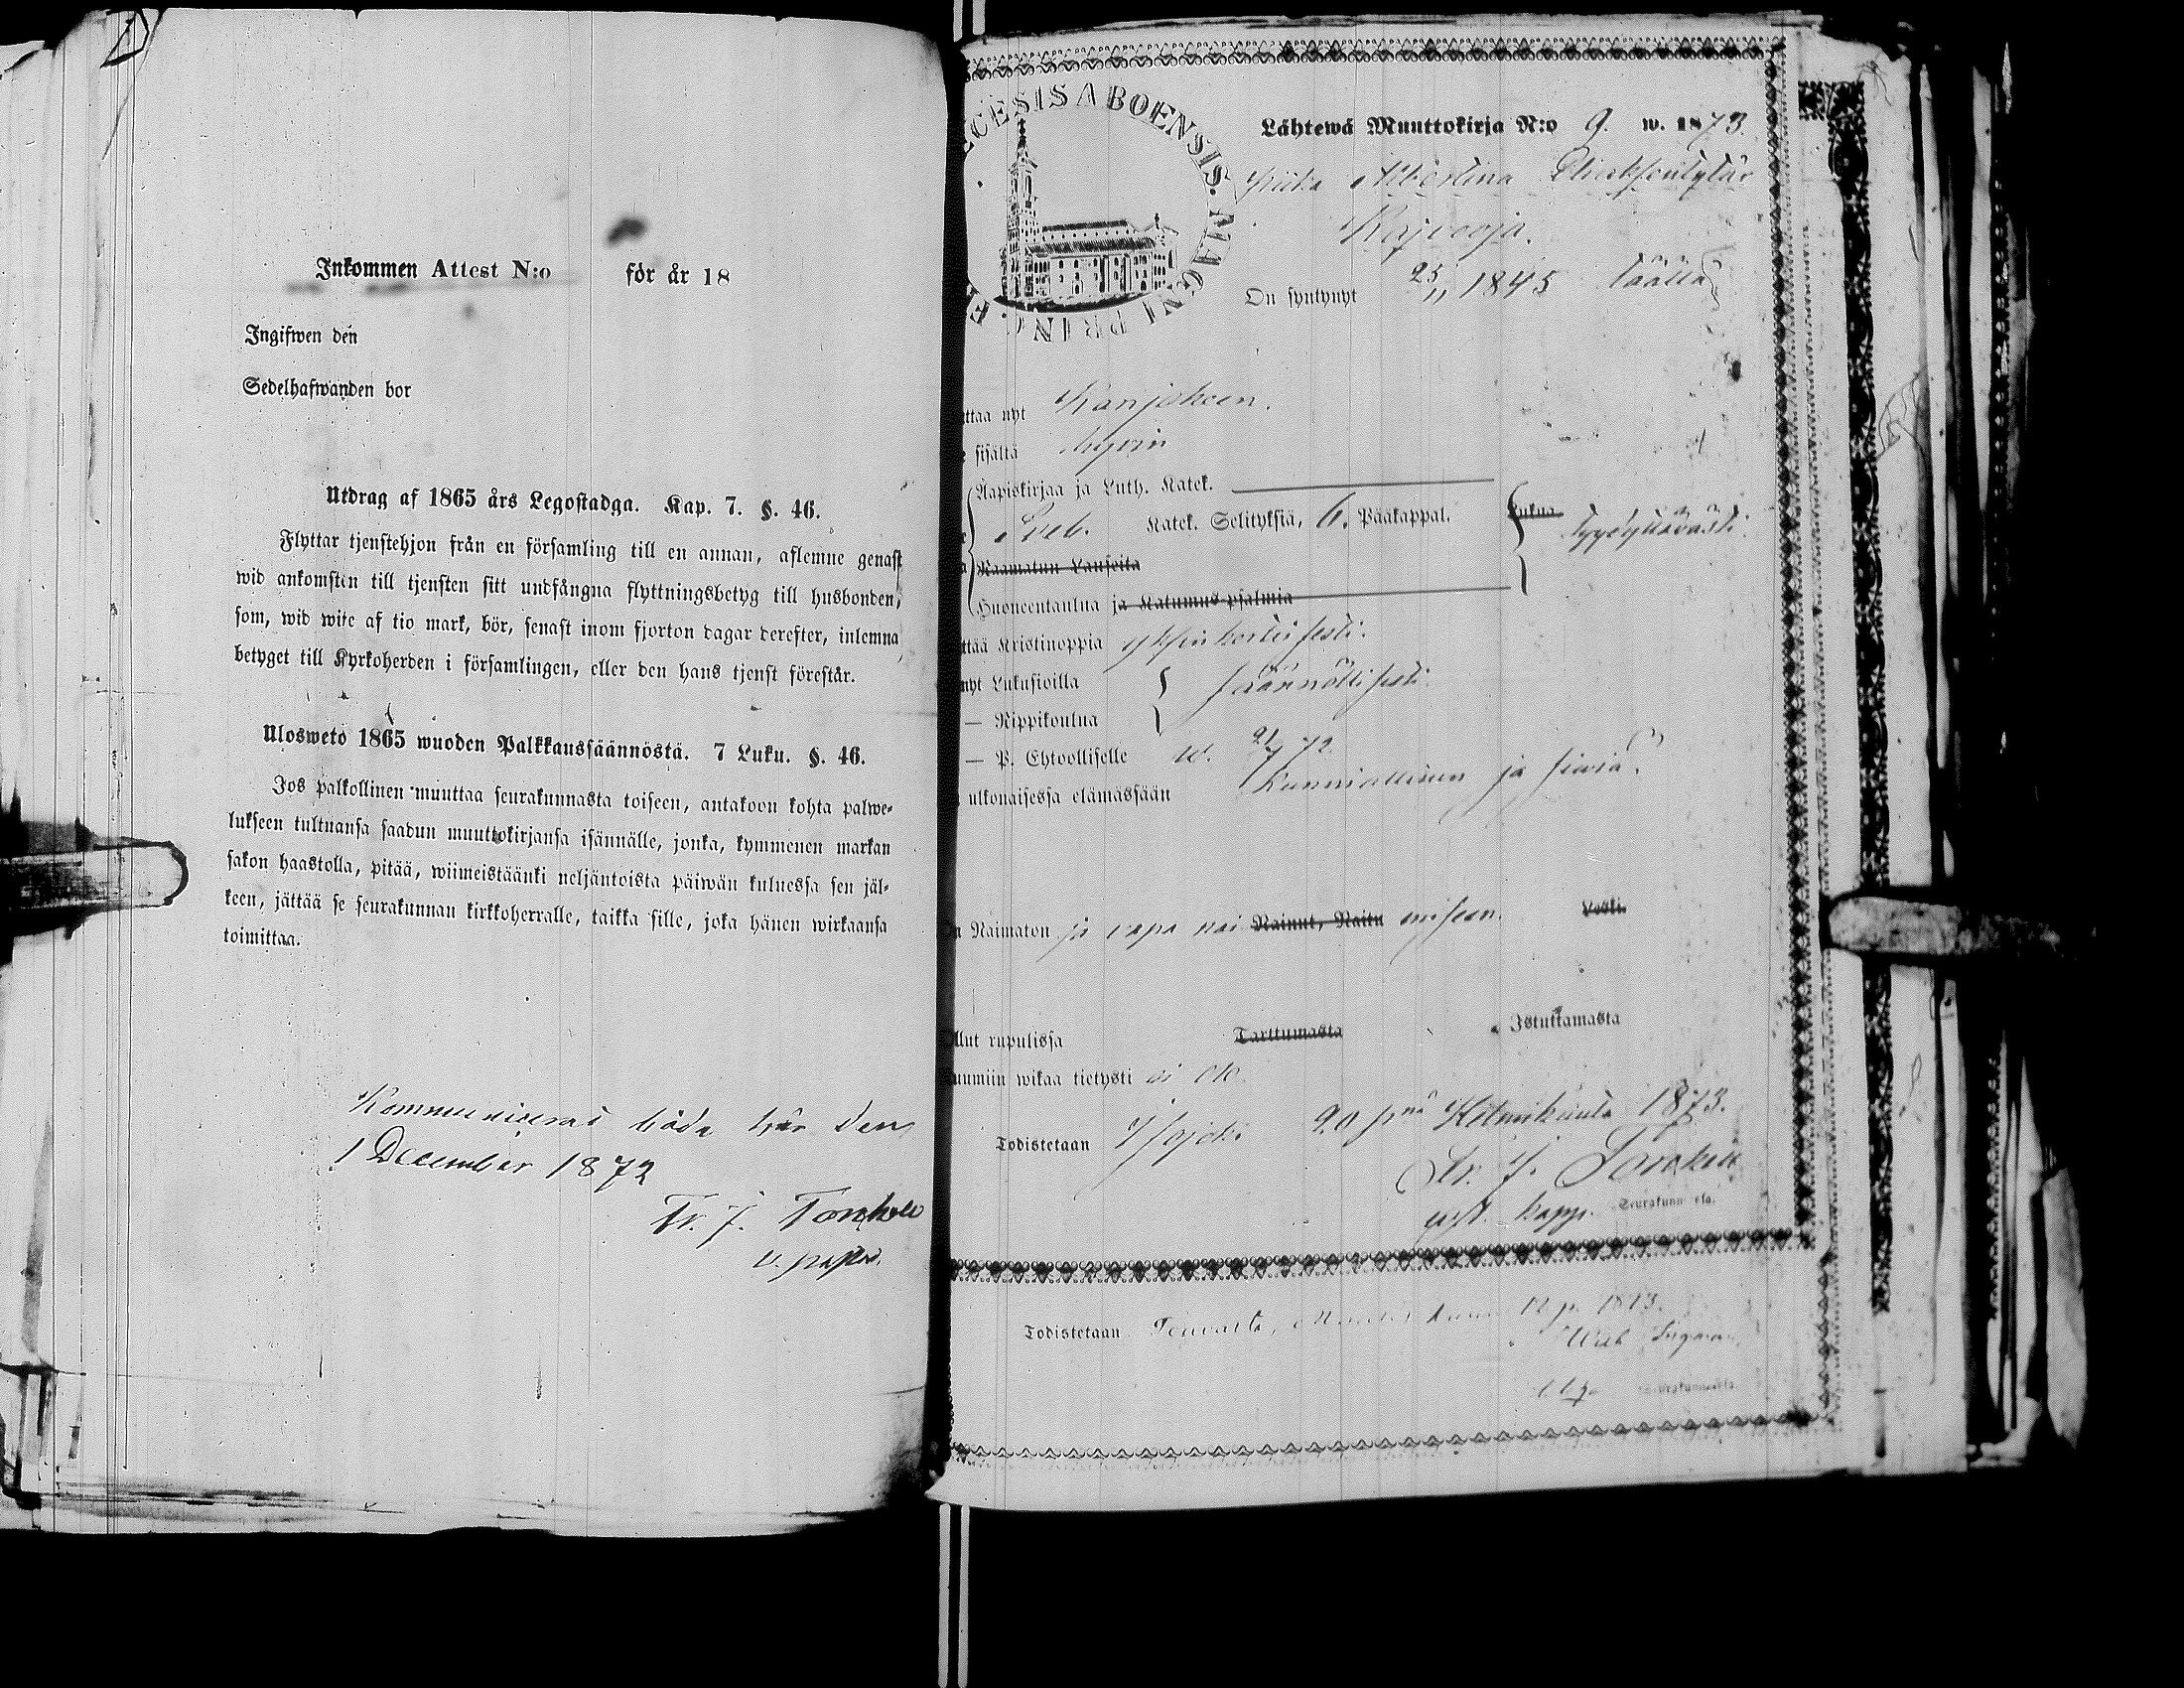 Inkommen Attest N:o för år 18
Ingifwen den
Sedelhafwanden bor
Utdrag af 1865 års Legostadga. Kap. 7. §. 46.
Flyttar tjenstehjon från en församling till en annan, aflemne genast
wid ankomsten till tjensten sitt undfångna flyttningsbetyg till husbonden,
som, wid wite af tio mark, bör, senast inom fjorton dagar derefter, inlemna
betyget till Kyrkoherden i församlingen, eller den hans tjenst förestår.
Ulosweto 1865 wuoden Palkkaussäännöstä. 7 Luku. §. 46.
Jos palkollinen muuttaa seurakunnasta toiseen, antakoon kohta palwe-
lukseen tultuansa saadun muuttokirjansa isännälle, jonka, kymmenen markan
sakon haastolla, pitää, wiimeistäänki neljäntoista päiwän kuluessa sen jäl-
keen, jättää se seurakunnan kirkkoherralle, taikka sille, joka hänen wirkaansa
toimittaa.
Kommunicerad båda här den
1 December 1872
Fr. J.
CESIS ABOENSIS. MAGNI PRINC. F
Lähtewä Muuttokirja N:o 9. w. 1873.
Albertina
Rajvooja.
On syntynyt 25/11 1845 täällä
ttaa nyt
sisältä hywin
Aapiskirjaa ja Luth. Katek.
Sveb. Katek. Selityksiä, 6. Pääkappal. Lukua tyydyttäwästi.
Raamatun Lauseita
Huoneentaulua ja Katumus-psalmia
ttää Kristinoppia yksinkertaisesti.
nyt Lukusioilla säännöllisesti
— Rippikoulua
— P. Ehtoolliselle w. 21/7 72.
ulkonaisessa elämässään kunniallinen ja siwiä.
On Naimaton ja vapa nai Nainut, Naitu miseen. Leski.
Ollut rupulissa Tarttumasta Istuttamasta
uumiin wikaa tietysti ei ole.
Todistetaan Isojoki 20 pnä Helmikuuta 1873.
Fr. J.
kapp. Seurakunnassa.
Todistetaan 12 p. 1873.